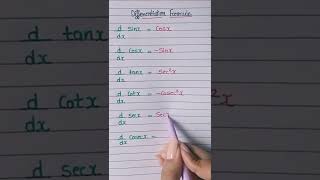 Differentiation Formula
d/dx sinx = cosx
d/dx cosx = -sinx
d/dx tanx = sec²x
d/dx cotx = -cosec²x
d/dx secx = sec
d/dx cosecx =